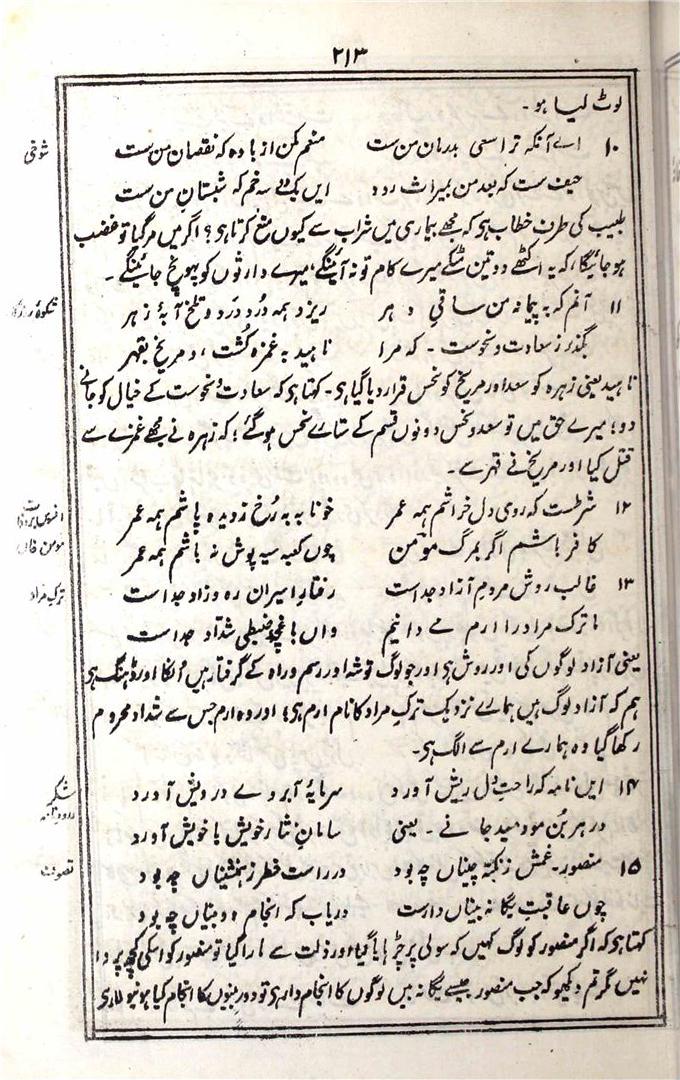 ۲۱۳
لوٹ لیا ہو۔
۱۰ اے آنکہ ترا سعی بدرمان من ست منعم مکن از بادہ کہ نقصان من ست
شوخی
حیف ست کہ بعد من بمیراث رود ایں یک دو سہ خم کہ شبستان من ست
طبیب کی طرف خطاب ہی کہ مجھے بیماری میں شراب سے کیوں منع کرتا ہی؟ اگر میں مر گیا تو غضب
ہو جائیگا، کہ یہ اکٹھے دو تین مٹکے میرے کام تو نہ آئینگے، میرے وارثوں کو پہونچ جائینگے۔
۱۱ آنم کہ بہ پیمانہ من ساقی دہر ریزد ہمہ دُرد درد و تلخ آبۂ زہر
شکوۂ
بگذر ز سعادت و نحوست۔ کہ مرا ناہید بہ غمزہ کُشت، و مریخ بقہر
ناہید یعنی زہرہ کو سعد اور مریخ کو نحس قرار دیا گیا ہی۔ کہتا ہی کہ سعادت و نحوست کے خیال کو جانے
دو؛ میرے حق میں تو سعد و نحس دونوں قسم کے ستارے نحس ہو گئے؛ کہ زہرہ نے مجھے غمزے سے
قتل کیا اور مریخ نے قہر سے۔
۱۲ شرطست کہ روی دل خراشم ہمہ عمر خونابہ بہ رُخ ز دیدہ پاشم ہمہ عمر
کافر باشم اگر بمرگ مومن چوں کعبہ سیہ پوش نہ باشم ہمہ عمر
مومن خاں
۱۳ غالب روش مردم آزاد جداست رفتارِ اسیران رہ و زاد جداست
ترکِ مراد
ما ترک مراد را ارم مے دانیم واں باغچۂ ضبطی شداد جداست
یعنی آزاد لوگوں کی اور روش ہی اور جو لوگ توشہ اور رسم و راہ کے گرفتار ہیں اُنکا اور ڈھنگ ہی
ہم کہ آزاد لوگ ہیں ہمارے نزدیک ترکِ مراد کا نام ارم ہی؛ اور وہ ارم جس سے شداد محروم
رکھا گیا وہ ہمارے ارم سے الگ ہی۔
۱۴ ایں نامہ کہ راحتِ دل ریش آورد سرمایۂ آبروے درویش آورد
شکر
در ہر بُن مو دمید جانے۔ یعنی سامانِ نثارِ خویش با خویش آورد
۱۵ منصور۔ غمش ز نکتہ چیناں چہ بود در راست خطر ز ہمنشیناں چہ بود
تصوف
چوں عاقبتِ یگانہ بیناں دارست دریاب کہ انجام دو بیناں چہ بود
کہتا ہی کہ اگر منصور کو لوگ کہیں کہ سولی پر چڑھایا گیا اور ذلت سے مارا گیا تو منصور کو اسکی کچھ پروا
نہیں مگر تم دیکھو کہ جب منصور جیسے یگانہ بیں لوگوں کا انجام دار ہی تو دو بینوں کا انجام کیا